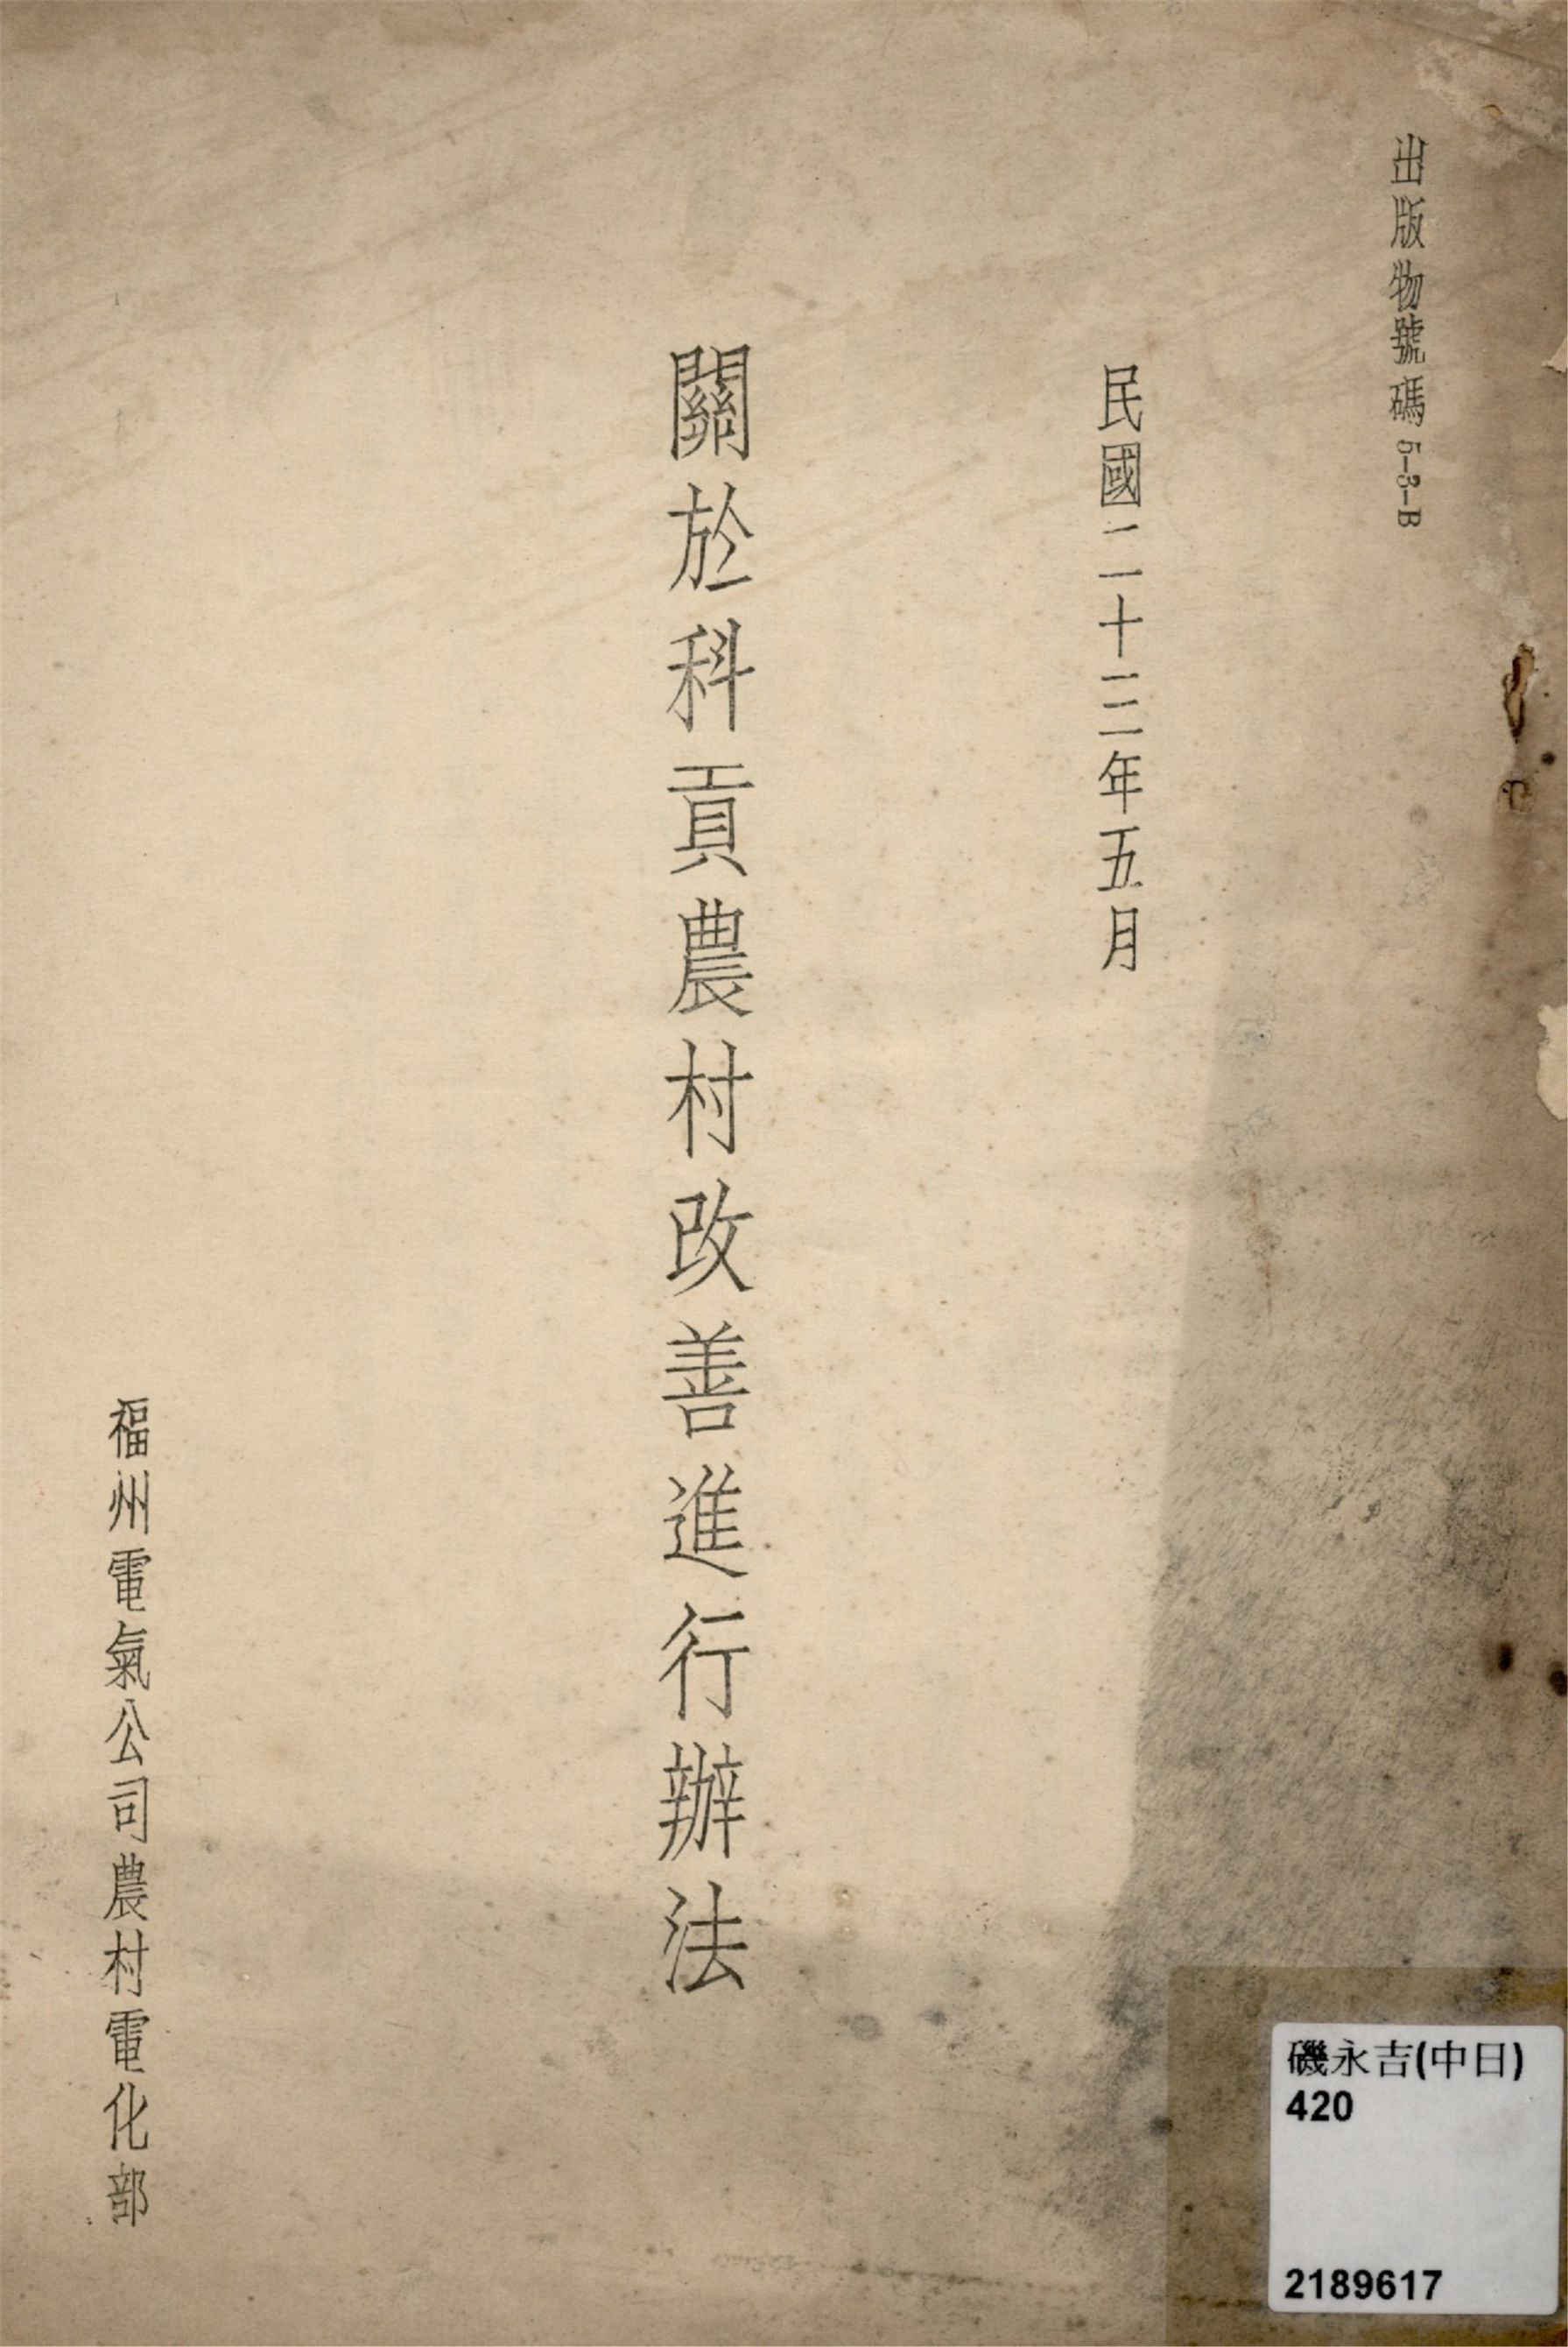 出版物號碼 5-3-B
民國二十三年五月
關於科貢農村改善進行辦法
福州電氣公司農村電化部
磯永吉(中日)
420
2189617